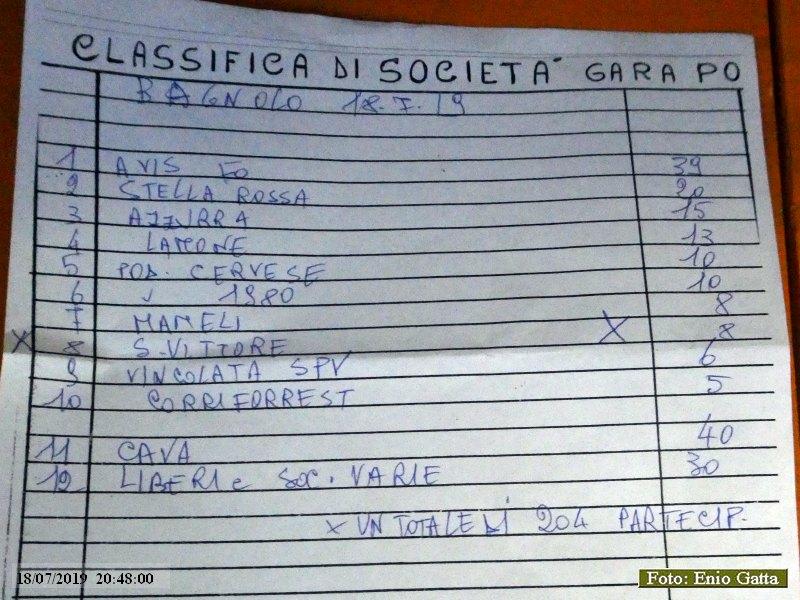 CLASSIFICA DI SOCIETA' GARA PO
BAGNOLO 18.7.19
1 AVIS FO 39
2 STELLA ROSSA 20
3 AZZURRA 15
4 LAMONE 13
5 POD. CERVESE 10
6 " 1980 10
7 MAMELI 8
X 8 S. VITTORE X 8
9 VINCOLATA SPV 6
10 CORRIFORREST 5
11 CAVA 40
12 LIBERI e SOC. VARIE 30
X UN TOTALE DI 204 PARTECIP.
18/07/2019 20:48:00
Foto: Enio Gatta